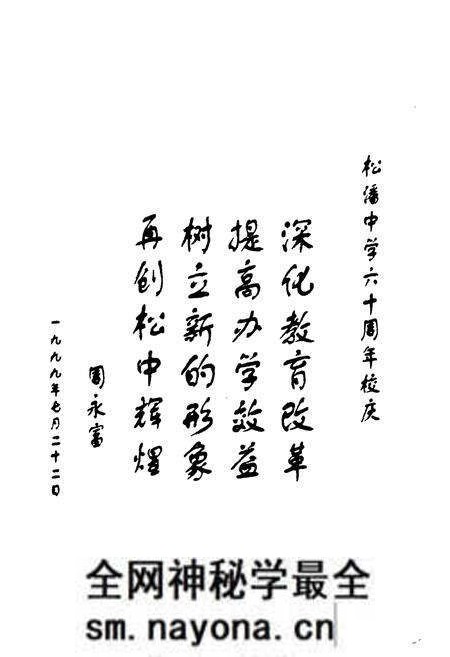 松潘中学六十周年校庆
深化教育改革
提高办学效益
树立新的形象
再创松中辉煌
周永富
一九九九年七月二十二日
全网神秘学最全
sm.nayona.cn